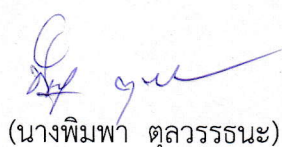 (นางพิมพา ตุลวรรธนะ)